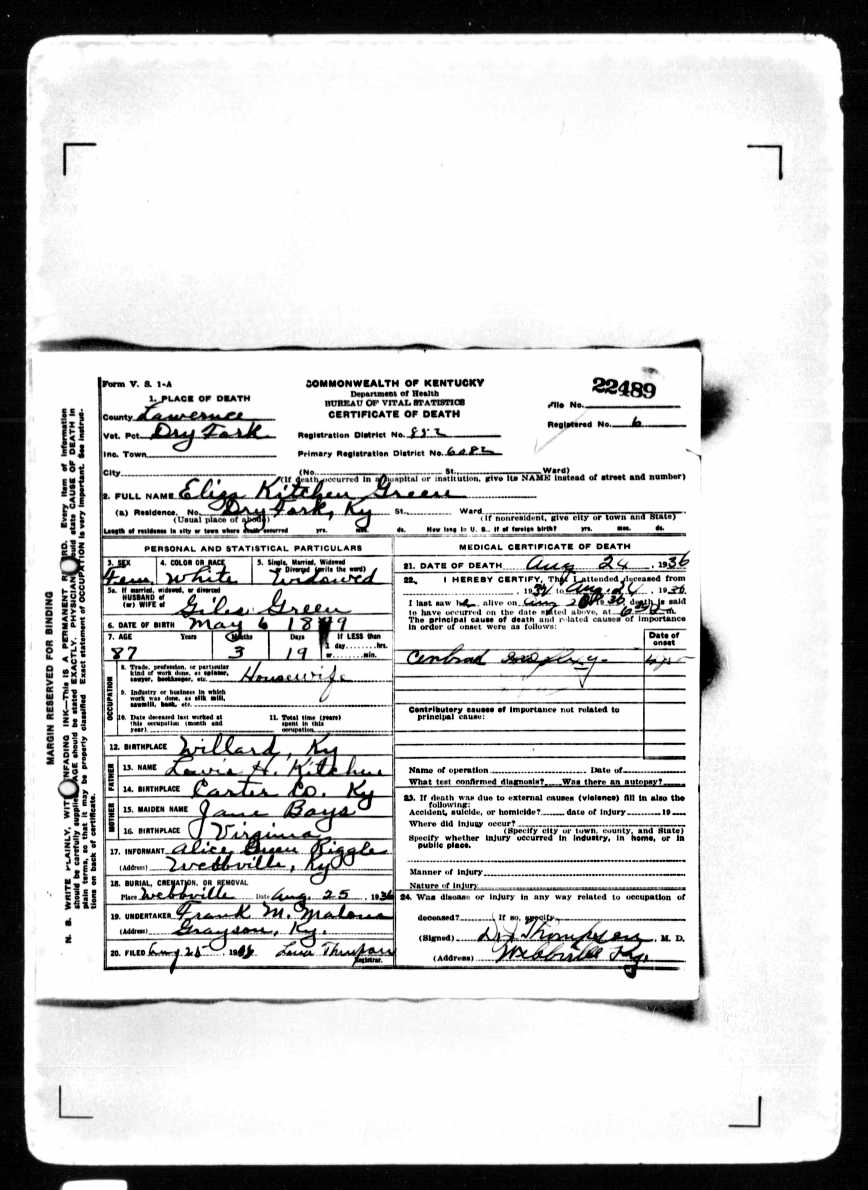 Form V. S. 1-A
COMMONWEALTH OF KENTUCKY
Department of Health
BUREAU OF VITAL STATISTICS
CERTIFICATE OF DEATH
22489
File No.
Registered No. 6
1. PLACE OF DEATH
County Lawrence
Vot. Pct. Dry Fork
Registration District No. 882
Inc. Town
Primary Registration District No. 6082
City (No. St. Ward)
(If death occurred in a hospital or institution, give its NAME instead of street and number)
2. FULL NAME Eliza Kitchen Green
(a) Residence. No. Dry Fork, Ky St. Ward
(Usual place of abode) (If nonresident, give city or town and State)
Length of residence in city or town where death occurred yrs. mos. ds. How long in U. S., if of foreign birth? yrs. mos. ds.
PERSONAL AND STATISTICAL PARTICULARS
3. SEX 4. COLOR OR RACE 5. Single, Married, Widowed
or Divorced (write the word)
Fem White Widowed
5a. If married, widowed, or divorced
HUSBAND of
(or) WIFE of Giles Green
6. DATE OF BIRTH May 6 1849
7. AGE Years Months Days If LESS than
1 day hrs.
87 3 19 or min.
OCCUPATION
8. Trade, profession, or particular
kind of work done, as spinner,
sawyer, bookkeeper, etc. Housewife
9. Industry or business in which
work was done, as silk mill,
sawmill, bank, etc.
10. Date deceased last worked at
this occupation (month and
year)
11. Total time (years)
spent in this
occupation
12. BIRTHPLACE Willard, Ky
FATHER
13. NAME Lewis H. Kitchen
14. BIRTHPLACE Carter Co. Ky
MOTHER
15. MAIDEN NAME Jane Bays
16. BIRTHPLACE Virginia
17. INFORMANT Alice Green Riggles
(Address) Webbville, Ky
18. BURIAL, CREMATION, OR REMOVAL
Place Webbville Date Aug. 25, 1936
19. UNDERTAKER Frank M. Malone
(Address) Grayson, Ky.
20. FILED Aug 25, 1936
Registrar.
MEDICAL CERTIFICATE OF DEATH
21. DATE OF DEATH Aug 24, 1936
22. I HEREBY CERTIFY, That I attended deceased from
, 1936 to Aug. 24, 1936
I last saw h alive on Aug 1936, death is said
to have occurred on the date stated above, at m.
The principal cause of death and related causes of importance
in order of onset were as follows:
Date of
onset
Contributory causes of importance not related to
principal cause:
Name of operation Date of
What test confirmed diagnosis? Was there an autopsy?
23. If death was due to external causes (violence) fill in also the
following:
Accident, suicide, or homicide? date of injury 19
Where did injury occur?
(Specify city or town, county, and State)
Specify whether injury occurred in industry, in home, or in
public place.
Manner of injury
Nature of injury
24. Was disease or injury in any way related to occupation of
deceased? If so, specify
(Signed) Thompson, M. D.
(Address) Webbville Ky.
MARGIN RESERVED FOR BINDING
N. B. WRITE PLAINLY, WITH UNFADING INK—This is A PERMANENT RECORD. Every item of information
should be carefully supplied. AGE should be stated EXACTLY. PHYSICIANS should state CAUSE OF DEATH in
plain terms, so that it may be properly classified. Exact statement of OCCUPATION is very important. See instruc-
tions on back of certificate.